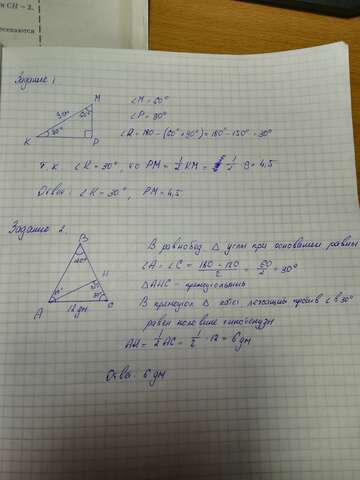 и CH – 2.
Задание 1
M
60°
K
30°
P
∠M = 60°
∠P = 90°
∠K = 180 – (60°+90°) = 180° – 150° = 30°
т. к. ∠K = 30°, то PM = 1/2 KM = 1/2 · 9 = 4,5
Ответ: ∠K = 30°, PM = 4,5
Задание 2
B
120°
H
A
C
30°
12 дм
В равнобед. △ углы при основании равны
∠A = ∠C = 180 – 120 / 2 = 60 / 2 = 30°
△AHC – прямоугольник
В прямоугол △ катет лежащий против ∠ в 30°
равен половине гипотенузы
AH = 1/2 AC = 1/2 · 12 = 6 дм
Ответ: 6 дм